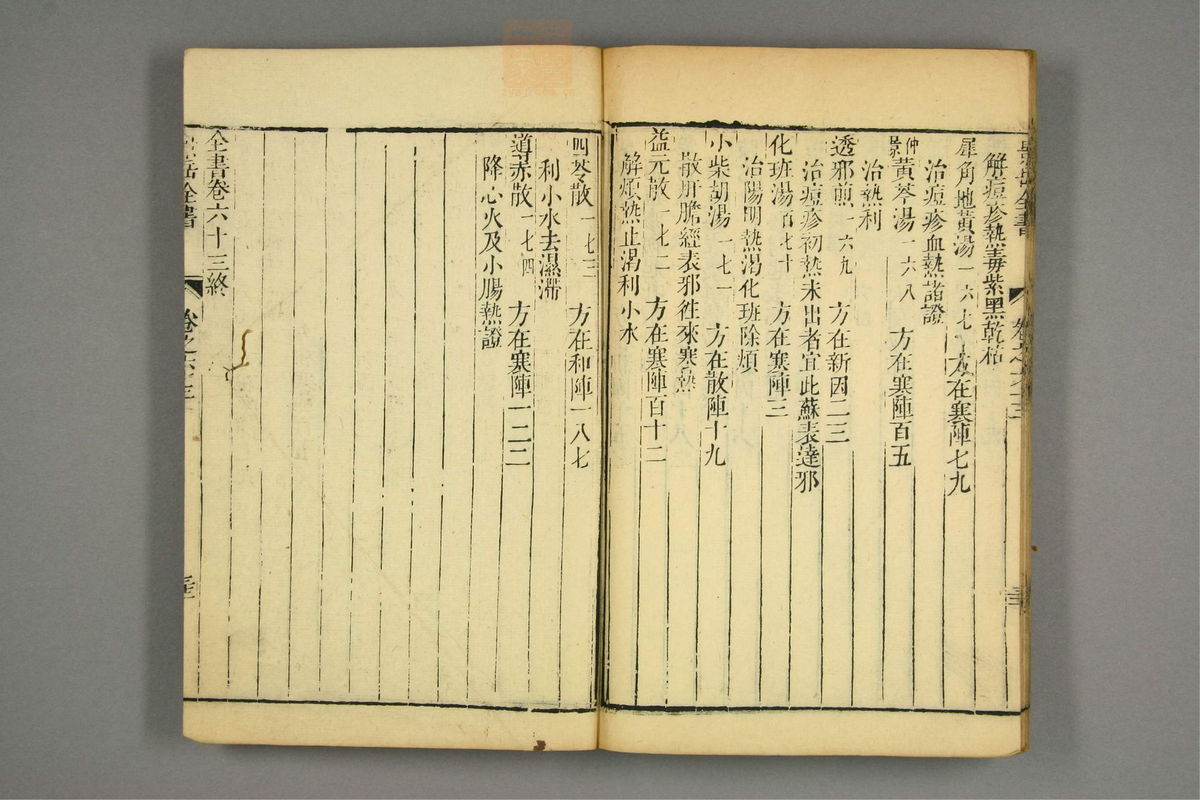 景岳全書 卷之六十三
解痘疹熱毒紫黑乾枯
犀角地黃湯一六七 方在寒陣七九
治痘疹血熱諸證
仲景黃芩湯一六八 方在寒陣百五
治熱利
透邪煎一六九 方在新因二三
治痘疹初熱未出者宜此蘇表達邪
化班湯百七十 方在寒陣三
治陽明熱渴化班除煩
小柴胡湯一七一 方在散陣十九
散肝膽經表邪徃來寒熱
益元散一七二 方在寒陣百十二
解煩熱止渴利小水
四苓散一七三 方在和陣一八七
利小水去濕滯
導赤散一七四 方在寒陣一二二
降心火及小腸熱證
全書卷六十三終
景岳全書 卷之六十三